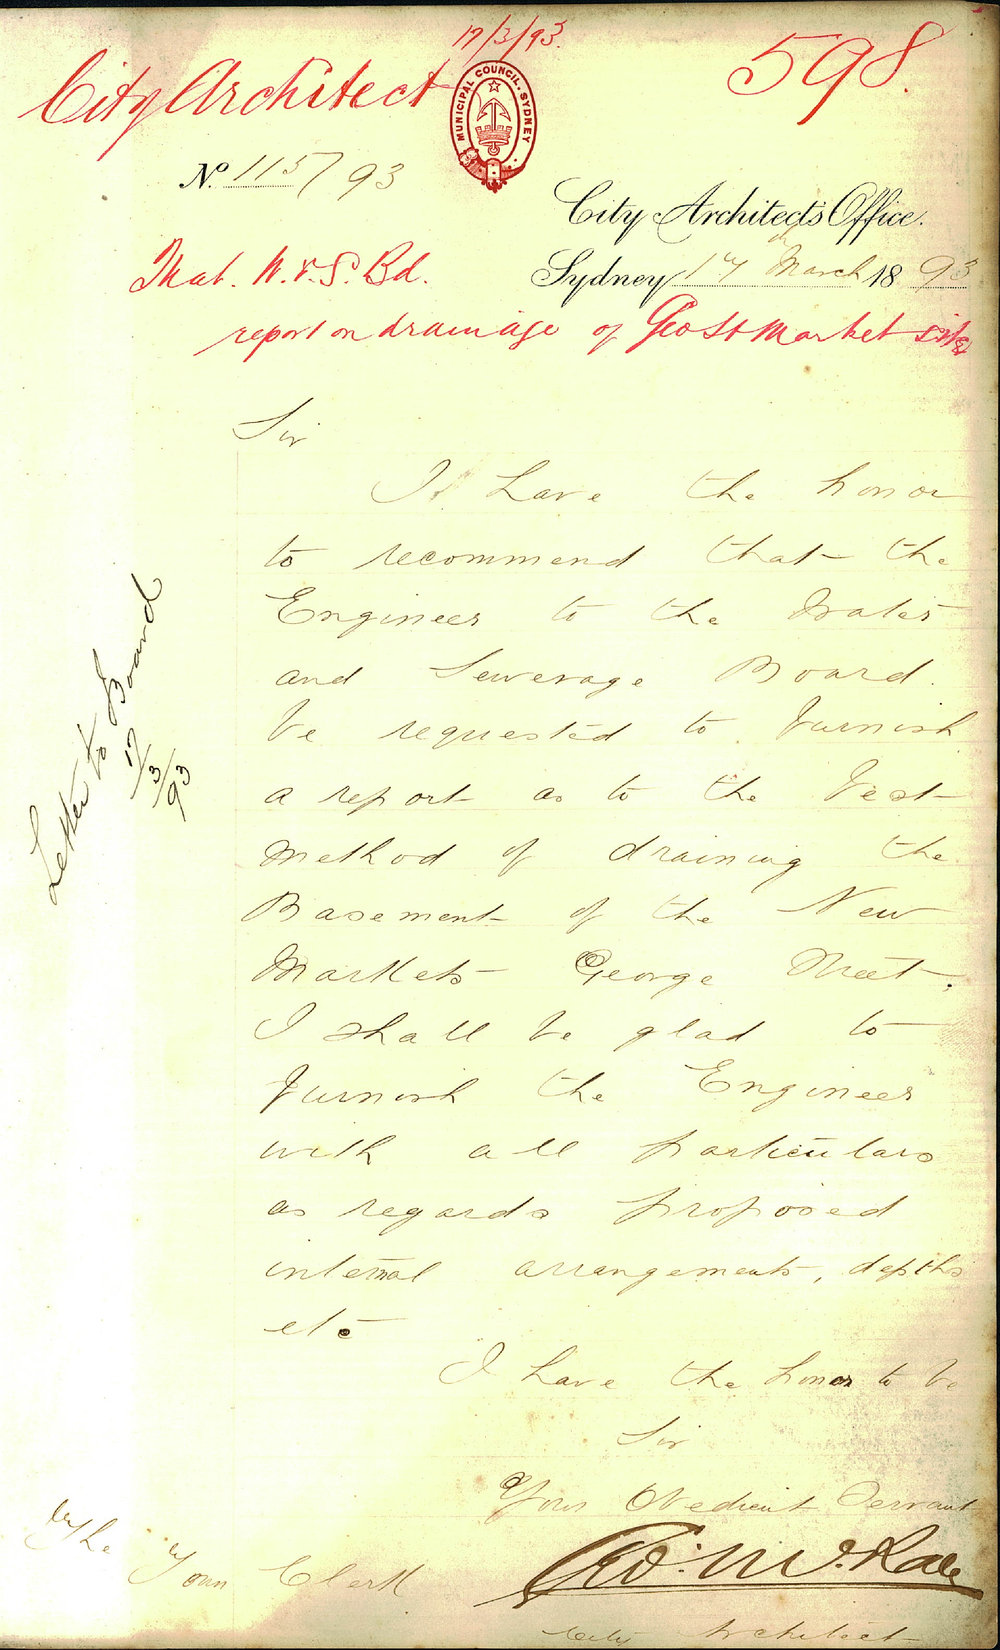 17/3/93.
598.
City Architect
MUNICIPAL COUNCIL. SYDNEY
No. 115/93
City Architect's Office.
Sydney 17 March 1893
That W. & S. Bd.
report on drainage of Geo St Market site
Sir
I have the honor
to recommend that the
Engineer to the Water
and Sewerage Board.
be requested to furnish
a report as to the best
method of draining the
Basement of the New
Markets George Street.
I shall be glad to
furnish the Engineer
with all particulars
as regards proposed
internal arrangements, depths
etc
I have the honor to be
Sir
Your Obedient Servant
Geo. McRae
City Architect
The Town Clerk
Letter to Board
17/3/93